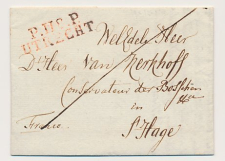 P.118.P.
UTRECHT
WelEdele Heer
Dr Heer Van Kerkhoff
Conservateur der Bosschen
en
Franco.
S'Hage